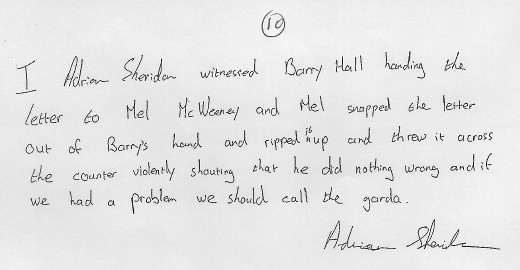 10
I Adrian Sheridan witnessed Barry Hall handing the
letter to Mel McWeeney and Mel snapped the letter
out of Barry's hand and ripped it up and threw it across
the counter violently shouting that he did nothing wrong and if
we had a problem we should call the garda.
Adrian Sheridan